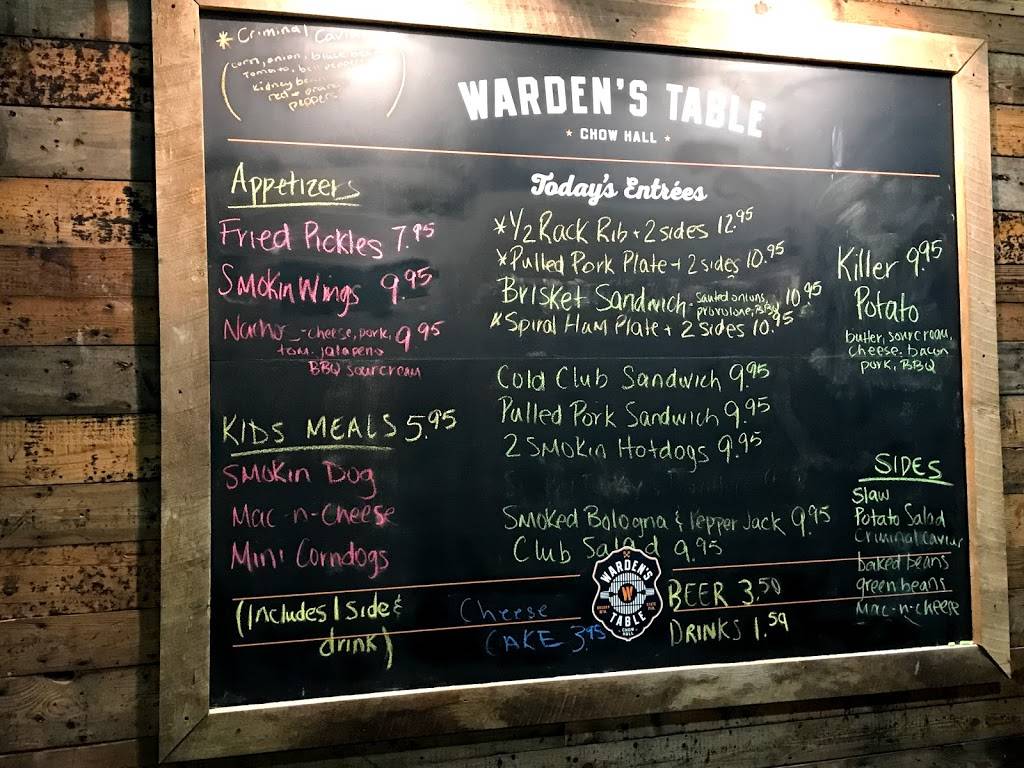 * Criminal
(corn, onion, black
Tomato, bell peppers
kidney
red + orange
peppers)
WARDEN'S TABLE
* CHOW HALL *
Appetizers
Fried Pickles 7.95
Smokin Wings 9.95
Nachos - cheese, pork, 9.95
tom. jalapeno
BBQ sourcream
KIDS MEALS 5.95
Smokin Dog
Mac-n-Cheese
Mini Corndogs
(Includes 1 side &
drink)
Today's Entrées
*1/2 Rack Rib + 2 sides 12.95
*Pulled Pork Plate + 2 sides 10.95
Brisket Sandwich - Sauted onions, 10.95
provolone, BBQ
*Spiral Ham Plate + 2 sides 10.95
Cold Club Sandwich 9.95
Pulled Pork Sandwich 9.95
2 Smokin Hotdogs 9.95
Smoked Bologna & Pepper Jack 9.95
Club Salad 9.95
Cheese
CAKE 3.95
WARDEN'S
W
TABLE
CHOW
HALL
BEER 3.50
DRINKS 1.59
Killer 9.95
Potato
butter, sour cream,
cheese, bacon
pork, BBQ
SIDES
Slaw
Potato Salad
Criminal Caviar
baked beans
green beans
Mac-n-cheese